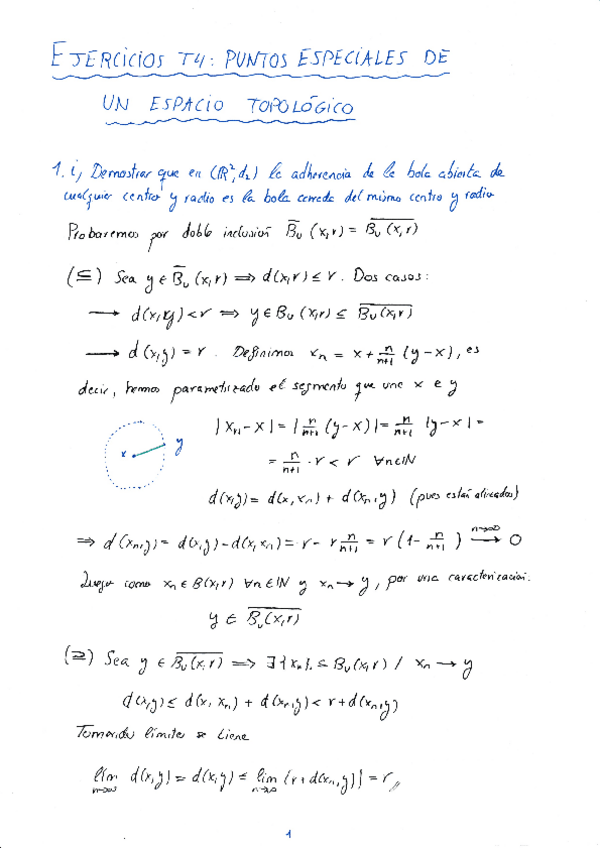 EJERCICIOS T4: PUNTOS ESPECIALES DE
UN ESPACIO TOPOLÓGICO
1. i) Demostrar que en (ℝ², d₂) la adherencia de la bola abierta de
cualquier centro y radio es la bola cerrada del mismo centro y radio
Probaremos por doble inclusión B̅ᵤ(x,r) = \overline{Bᵤ(x,r)}
(⊆) Sea y ∈ B̅ᵤ(x,r) ⟹ d(x,r) ≤ r. Dos casos:
⟶ d(x,y) < r ⟹ y ∈ Bᵤ(x,r) ⊆ \overline{Bᵤ(x,r)}
⟶ d(x,y) = r. Definimos xₙ = x + \frac{n}{n+1} (y-x), es
decir, hemos parametrizado el segmento que une x e y
x y
|xₙ - x| = |\frac{n}{n+1} (y-x)| = \frac{n}{n+1} |y-x| =
= \frac{n}{n+1} · r < r ∀n∈ℕ
d(x,y) = d(x,xₙ) + d(xₙ,y) (pues están alineados)
⟹ d(xₙ,y) = d(x,y) - d(x,xₙ) = r - r \frac{n}{n+1} = r (1 - \frac{n}{n+1}) \xrightarrow{n→∞} 0
Luego como xₙ ∈ B(x,r) ∀n∈ℕ y xₙ → y, por una caracterización.
y ∈ \overline{Bᵤ(x,r)}
(⊇) Sea y ∈ \overline{Bᵤ(x,r)} ⟹ ∃{xₙ} ⊆ Bᵤ(x,r) / xₙ → y
d(x,y) ≤ d(x,xₙ) + d(xₙ,y) < r + d(xₙ,y)
Tomando límites se tiene
\lim_{n→∞} d(x,y) = d(x,y) ≤ \lim_{n→∞} (r + d(xₙ,y)) = r //
1